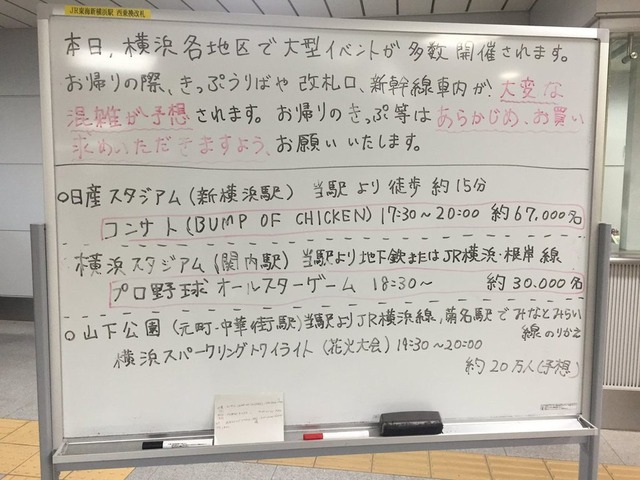 JR東海新横浜駅 西乗換改札
本日、横浜各地区で大型イベントが多数開催されます。
お帰りの際、きっぷうりばや改札口、新幹線車内が、大変な
混雑が予想されます。お帰りのきっぷ等はあらかじめ、お買い
求めいただきますよう、お願いいたします。
○日産スタジアム(新横浜駅) 当駅より徒歩約15分
コンサート(BUMP OF CHICKEN) 17:30~20:00 約67,000名
横浜スタジアム(関内駅) 当駅より地下鉄またはJR横浜・根岸線
プロ野球オールスターゲーム 18:30~ 約30.000名
○山下公園(元町・中華街駅)当駅よりJR横浜線,菊名駅でみなとみらい
線のりかえ
横浜スパークリングトワイライト(花火大会) 19:30~20:00
約20万人(予想)